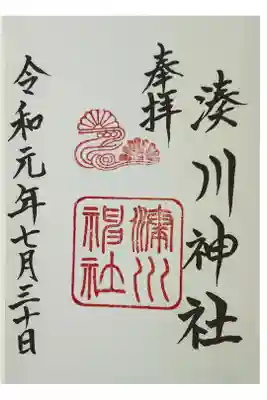 奉拝
湊川神社
湊川
神社
令和元年七月三十日